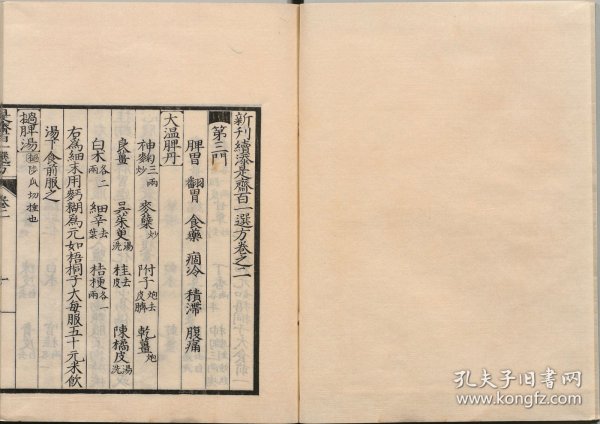 新刊續添是齋百一選方卷之二
第三門
脾胃 翻胃 食藥 痼冷 積滯 腹痛
大温脾丹
神麴三兩炒 麥糵炒 附子炮去皮臍 乾薑炮
良薑 吳茱萸湯洗 桂去皮 陳橘皮湯洗
白朮各二兩 細辛去葉 桔梗各一兩
右為細末用麪糊為元如梧桐子大每服五十元米飲
湯下食前服之
搥脾湯
卷二
孔夫子旧书网
www.kongfz.com